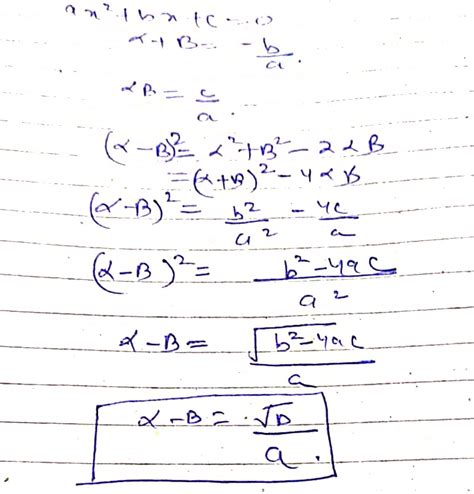 ax² + bx + c = 0
α + B = -b/a.
αB = c/a.
(α - B)² = α² + B² - 2αB
= (α + B)² - 4αB
(α - B)² = b²/a² - 4c/a
(α - B)² = b² - 4ac/a²
α - B = √b² - 4ac/a
α - B = √D/a.